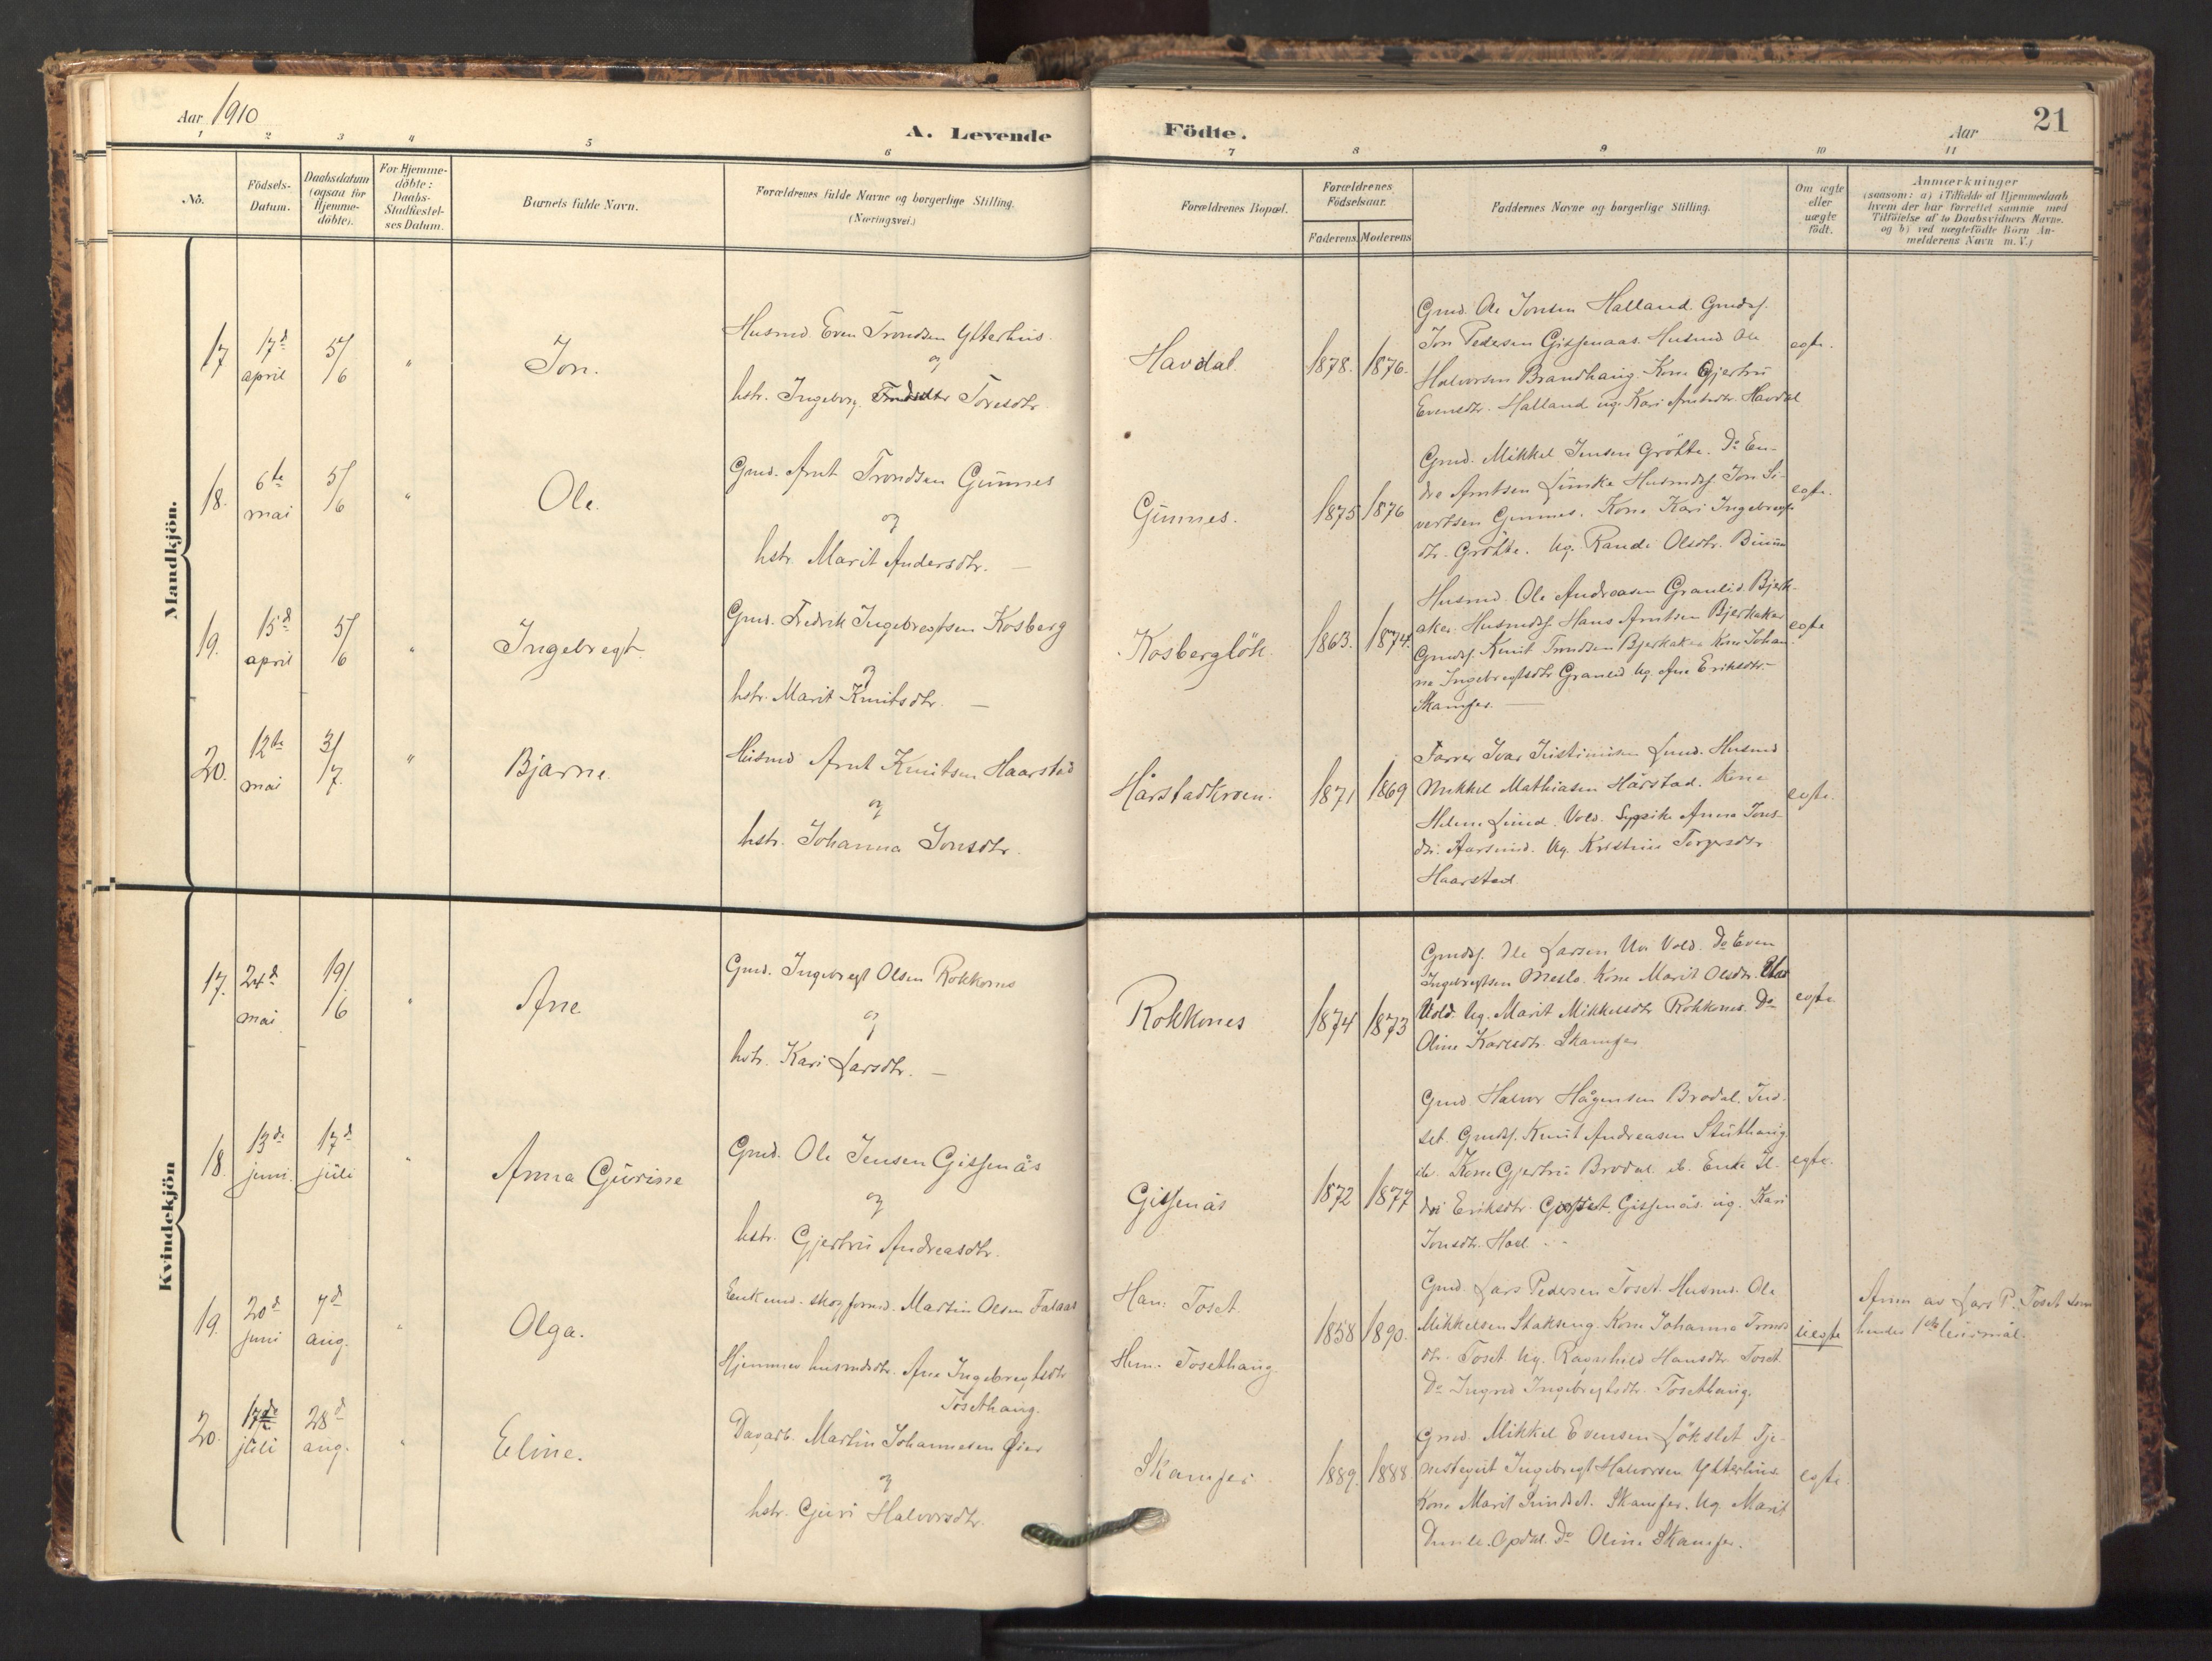 Aar 1910
A. Levende
Födte.
Aar
21
1 2 3 4 5 6 7 8 9 10 11
No.
Födsels-
Datum.
Daabsdatum
(ogsaa for
Hjemme-
döbte).
For Hjemme-
döbte:
Daabs-
Stadfæstel-
ses Datum.
Barnets fulde Navn.
Forældrenes fulde Navne og borgerlige Stilling.
(Næringsvei.)
Forældrenes Bopæl.
Forældrenes
Födselsaar.
Faderens.
Moderens
Faddernes Navne og borgerlige Stilling.
Om ægte
eller
uægte
födt.
Anmærkninger
(saasom: a) i Tilfælde af Hjemmedaab
hvem der har forrettet samme med
Tilföielse af to Daabsvidners Navne.
og b) ved uægtefödte Börn An-
melderens Navn m. V.)
Mandkjön.
17
17d
april
5/6
"
Jon.
Husmd. Even Trondsen Ytterhus.
og
hstr. Ingeborg Toresdtr.
Havdal.
1878.
1876.
Gmd. Ole Jonsen Halland. Gmds.
Jon Pedersen Gisenaas. Husmd Ole
Halvorsen Brandhaug. Kone Gjertru
Evensdtr. Halland ug. Kari Arntsdtr. Havdal
egte.
18.
6te
mai
5/6
"
Ole.
Gmd. Arnt Trondsen Gunnes
og
hstr. Marit Andersdtr. —
Gunnes.
1875
1876
Gmd. Mikkel Jensen Grötte. Do En-
dre Arntsen Lunke Husmds. Jon Si-
vertsen Gunnes. Kone Kari Ingebregts
dtr. Grötte. Ug. Randi Olsdtr.
egte.
19.
15d
april
5/6
"
Ingebregt.
Gmd. Fredrik Ingebregtsen Kosberg
og
hstr. Marit Knutsdtr. —
Kosberglök.
1863.
1874.
Husmd. Ole Andreasen Granlid. Bjerk-
aker. Husmds. Hans Arntsen Bjerkaker
Gmds. Knut Trondsen Bjerkaker Kone Johan-
ne Ingebregtsdtr Granlid Ug. Ane Eriksdtr.
Skamfer. —
egte
20.
12te
mai
3/7.
"
Bjarne.
Husmd Arnt Knutsen Haarstad
og
hstr. Johanna Jonsdtr.
Hårstadkroen.
1871
1869
Forver Ivar Lund. Husmd
Mikkel Mathiasen Hårstad. Kone
Helene Lund. Vold. Sypike Anna Jons-
dtr. Aarsund. Ug. Kristine Torgersdtr
Haarstad.
egte.
Kvindekjön
17.
24d
mai
19/6
"
Ane
Gmd. Ingebregt Olsen Rokkones
og
hstr. Kari Larsdtr. —
Rokkones
1874
1873
Gmds. Ole Larsen Uv Vold. Do Even
Ingebregtsen Meslo. Kone Marit Olsdtr.
Vold. Ug. Marit Mikkelsdtr Rokkones. Do
Oline Karlsdtr. Skamfer
egte
18.
13de
juni.
17d
juli
"
Anna Gurine
Gmd. Ole Jensen Gisenås
og
hstr. Gjertru Andreasdtr.
Gisenås
1872
1877
Gmd. Halvor Hågensen Brodal. Ind-
set. Gmds. Knut Andreasen Stuthaug
ib. Kone Gjertru Brodal. ib. Enke Il-
dri Eriksdtr. Gisenås. ug. Kari
Jonsdtr. Hoel.
egte.
19.
20d
juni
7d
aug.
"
Olga.
Enkemd. skogformd. Martin Olsen Falaas
Hjemmev husmdsdtr. Ane Ingebregtsdtr
Tosethaug.
Han: Toset.
Hun: Tosethaug
1858
1890.
Gmd. Lars Pedersen Toset. Husmd. Ole
Mikkelsen Stakseng. Kone Johanna Tronds
dtr. Toset. Ug. Ragnhild Hansdtr. Toset.
Do Ingrid Ingebregtsdtr. Tosethaug.
uegte
Anm av Lars P. Toset som
hendes 1ste leiermål.
20.
17de
juli
28d
aug.
"
Eline.
Dagarb. Martin Johannesen Øier
og
hstr. Guri Halvorsdtr.
Skamfer.
1889.
1888.
Gmd. Mikkel Evensen Lökslet Tje-
nestegut Ingebregt Halvorsen Ytterhus.
Kone Marit Sundset. Skamfer. Ug. Marit
Opdal. Do Oline Skamfer.
egte.